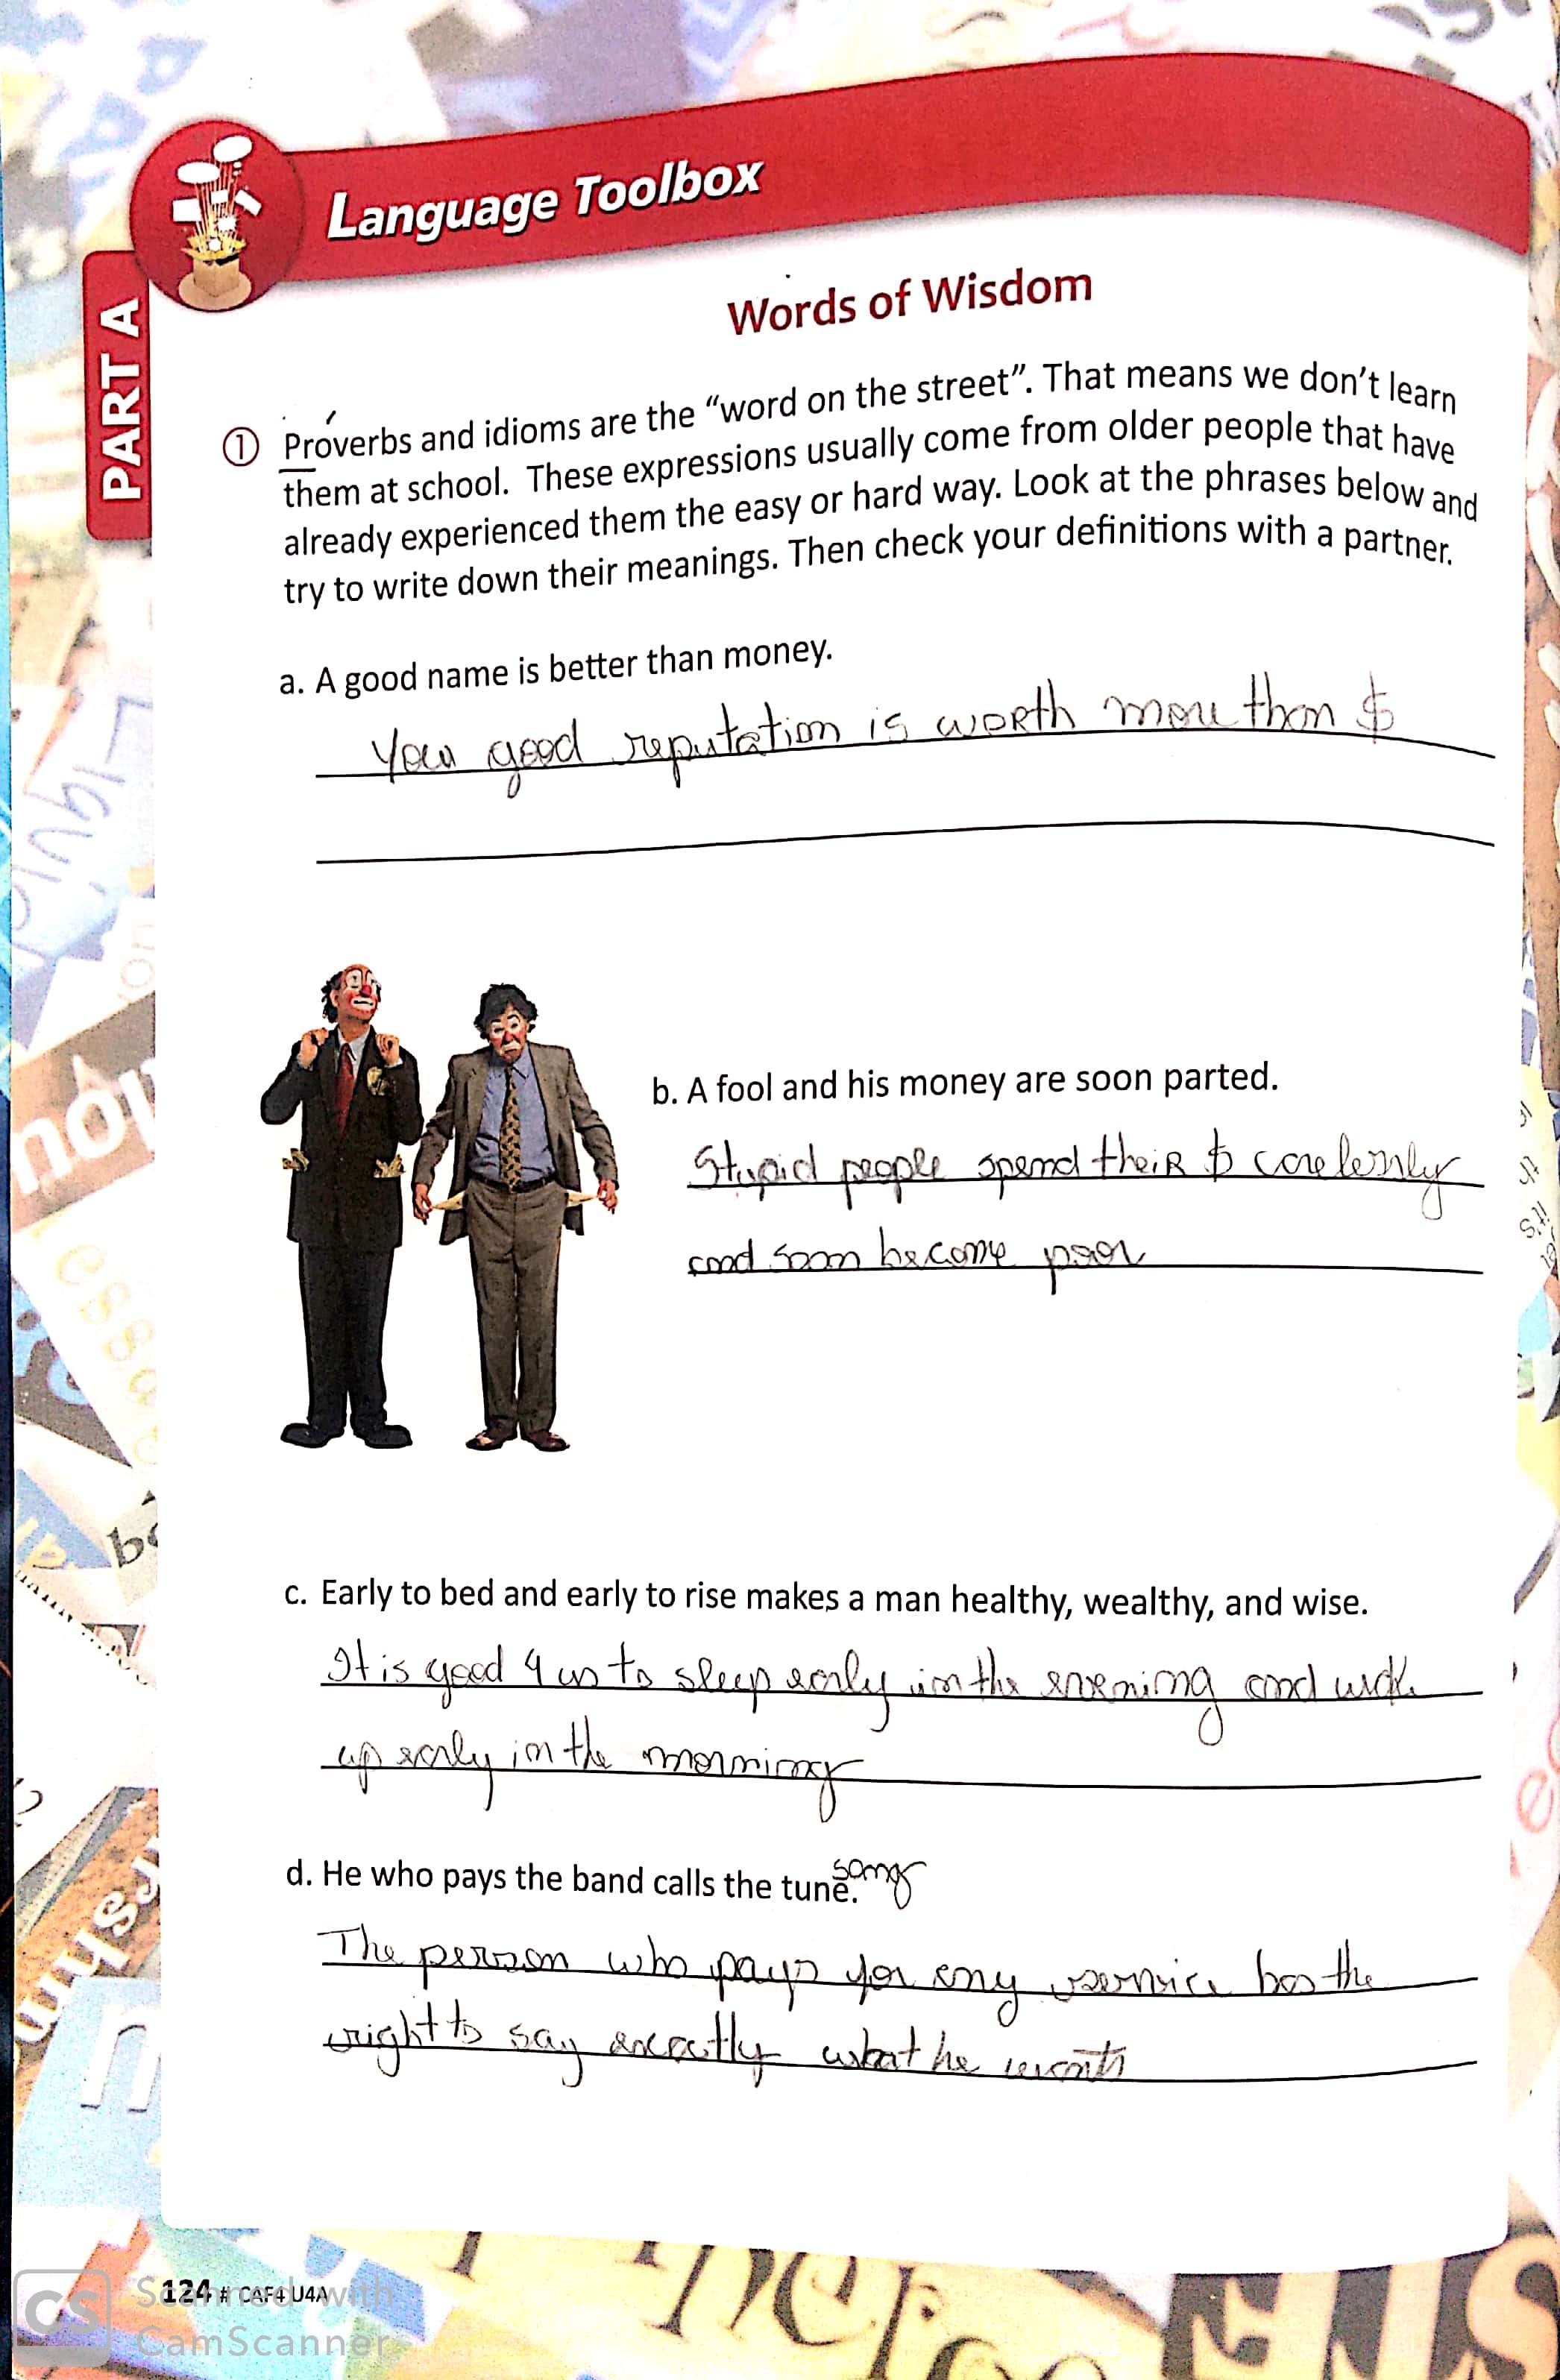 Language Toolbox
PART A
Words of Wisdom
① Proverbs and idioms are the “word on the street”. That means we don’t learn
them at school. These expressions usually come from older people that have
already experienced them the easy or hard way. Look at the phrases below and
try to write down their meanings. Then check your definitions with a partner.
a. A good name is better than money.
your good reputation is worth more than $
b. A fool and his money are soon parted.
Stupid people spend their $ carelessly
and soon become poor
c. Early to bed and early to rise makes a man healthy, wealthy, and wise.
It is good 4 us to sleep early in the evening and wake
up early in the morning
d. He who pays the band calls the tune. song
The person who pays for any service has the
right to say exactly what he wants
124 # CAF4 U4A
CS Scanned with
CamScanner